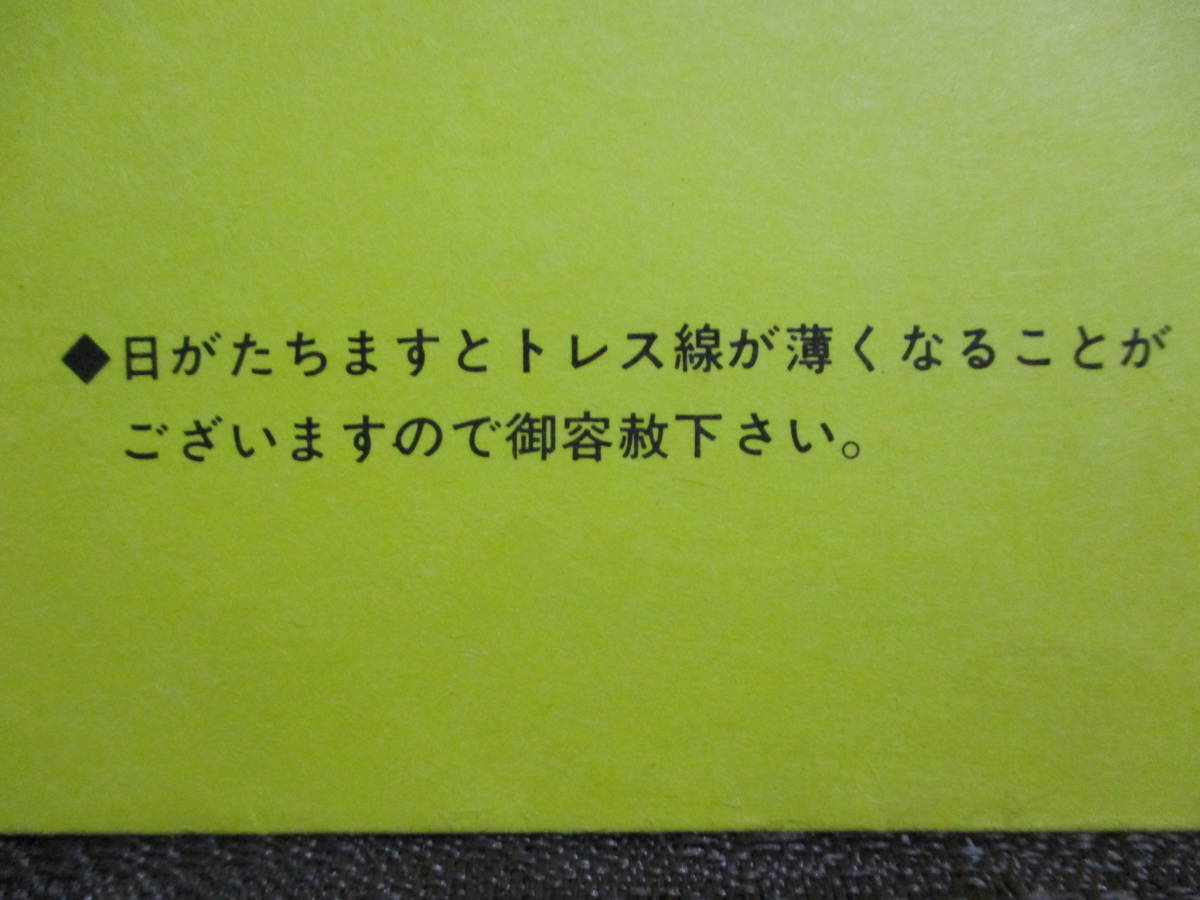 ◆日がたちますとトレス線が薄くなることが
ございますので御容赦下さい。